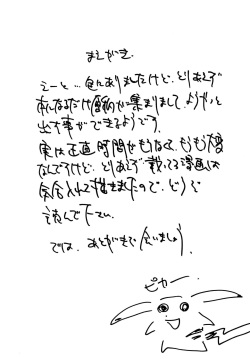 まえがき
えーと…色々ありましたけど、とりあえず
なんとなるだけ原稿が集まりまして、ようやっと
出す事ができるようです。
実は正直時間がもうなくて、もうも大変
なんですけど、とりあえず載ってる漫画は
気合入れて描きましたので、どうぞ
読んで下さい。
では、あとがきで会いましょう。
ピカー